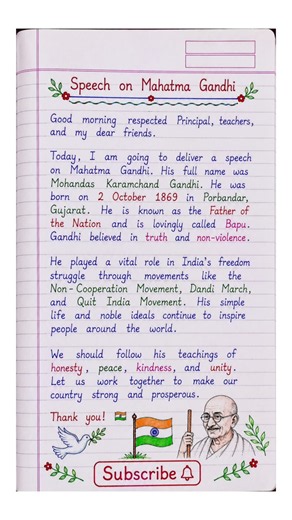 Speech on Mahatma Gandhi
Good morning respected Principal, teachers,
and my dear friends.
Today, I am going to deliver a speech
on Mahatma Gandhi. His full name was
Mohandas Karamchand Gandhi. He was
born on 2 October 1869 in Porbandar,
Gujarat. He is known as the Father of
the Nation and is lovingly called Bapu.
Gandhi believed in truth and non-violence.
He played a vital role in India's freedom
struggle through movements like the
Non-Cooperation Movement, Dandi March,
and Quit India Movement. His simple
life and noble ideals continue to inspire
people around the world.
We should follow his teachings of
honesty, peace, kindness, and unity.
Let us work together to make our
country strong and prosperous.
Thank you! 🇮🇳
Subscribe